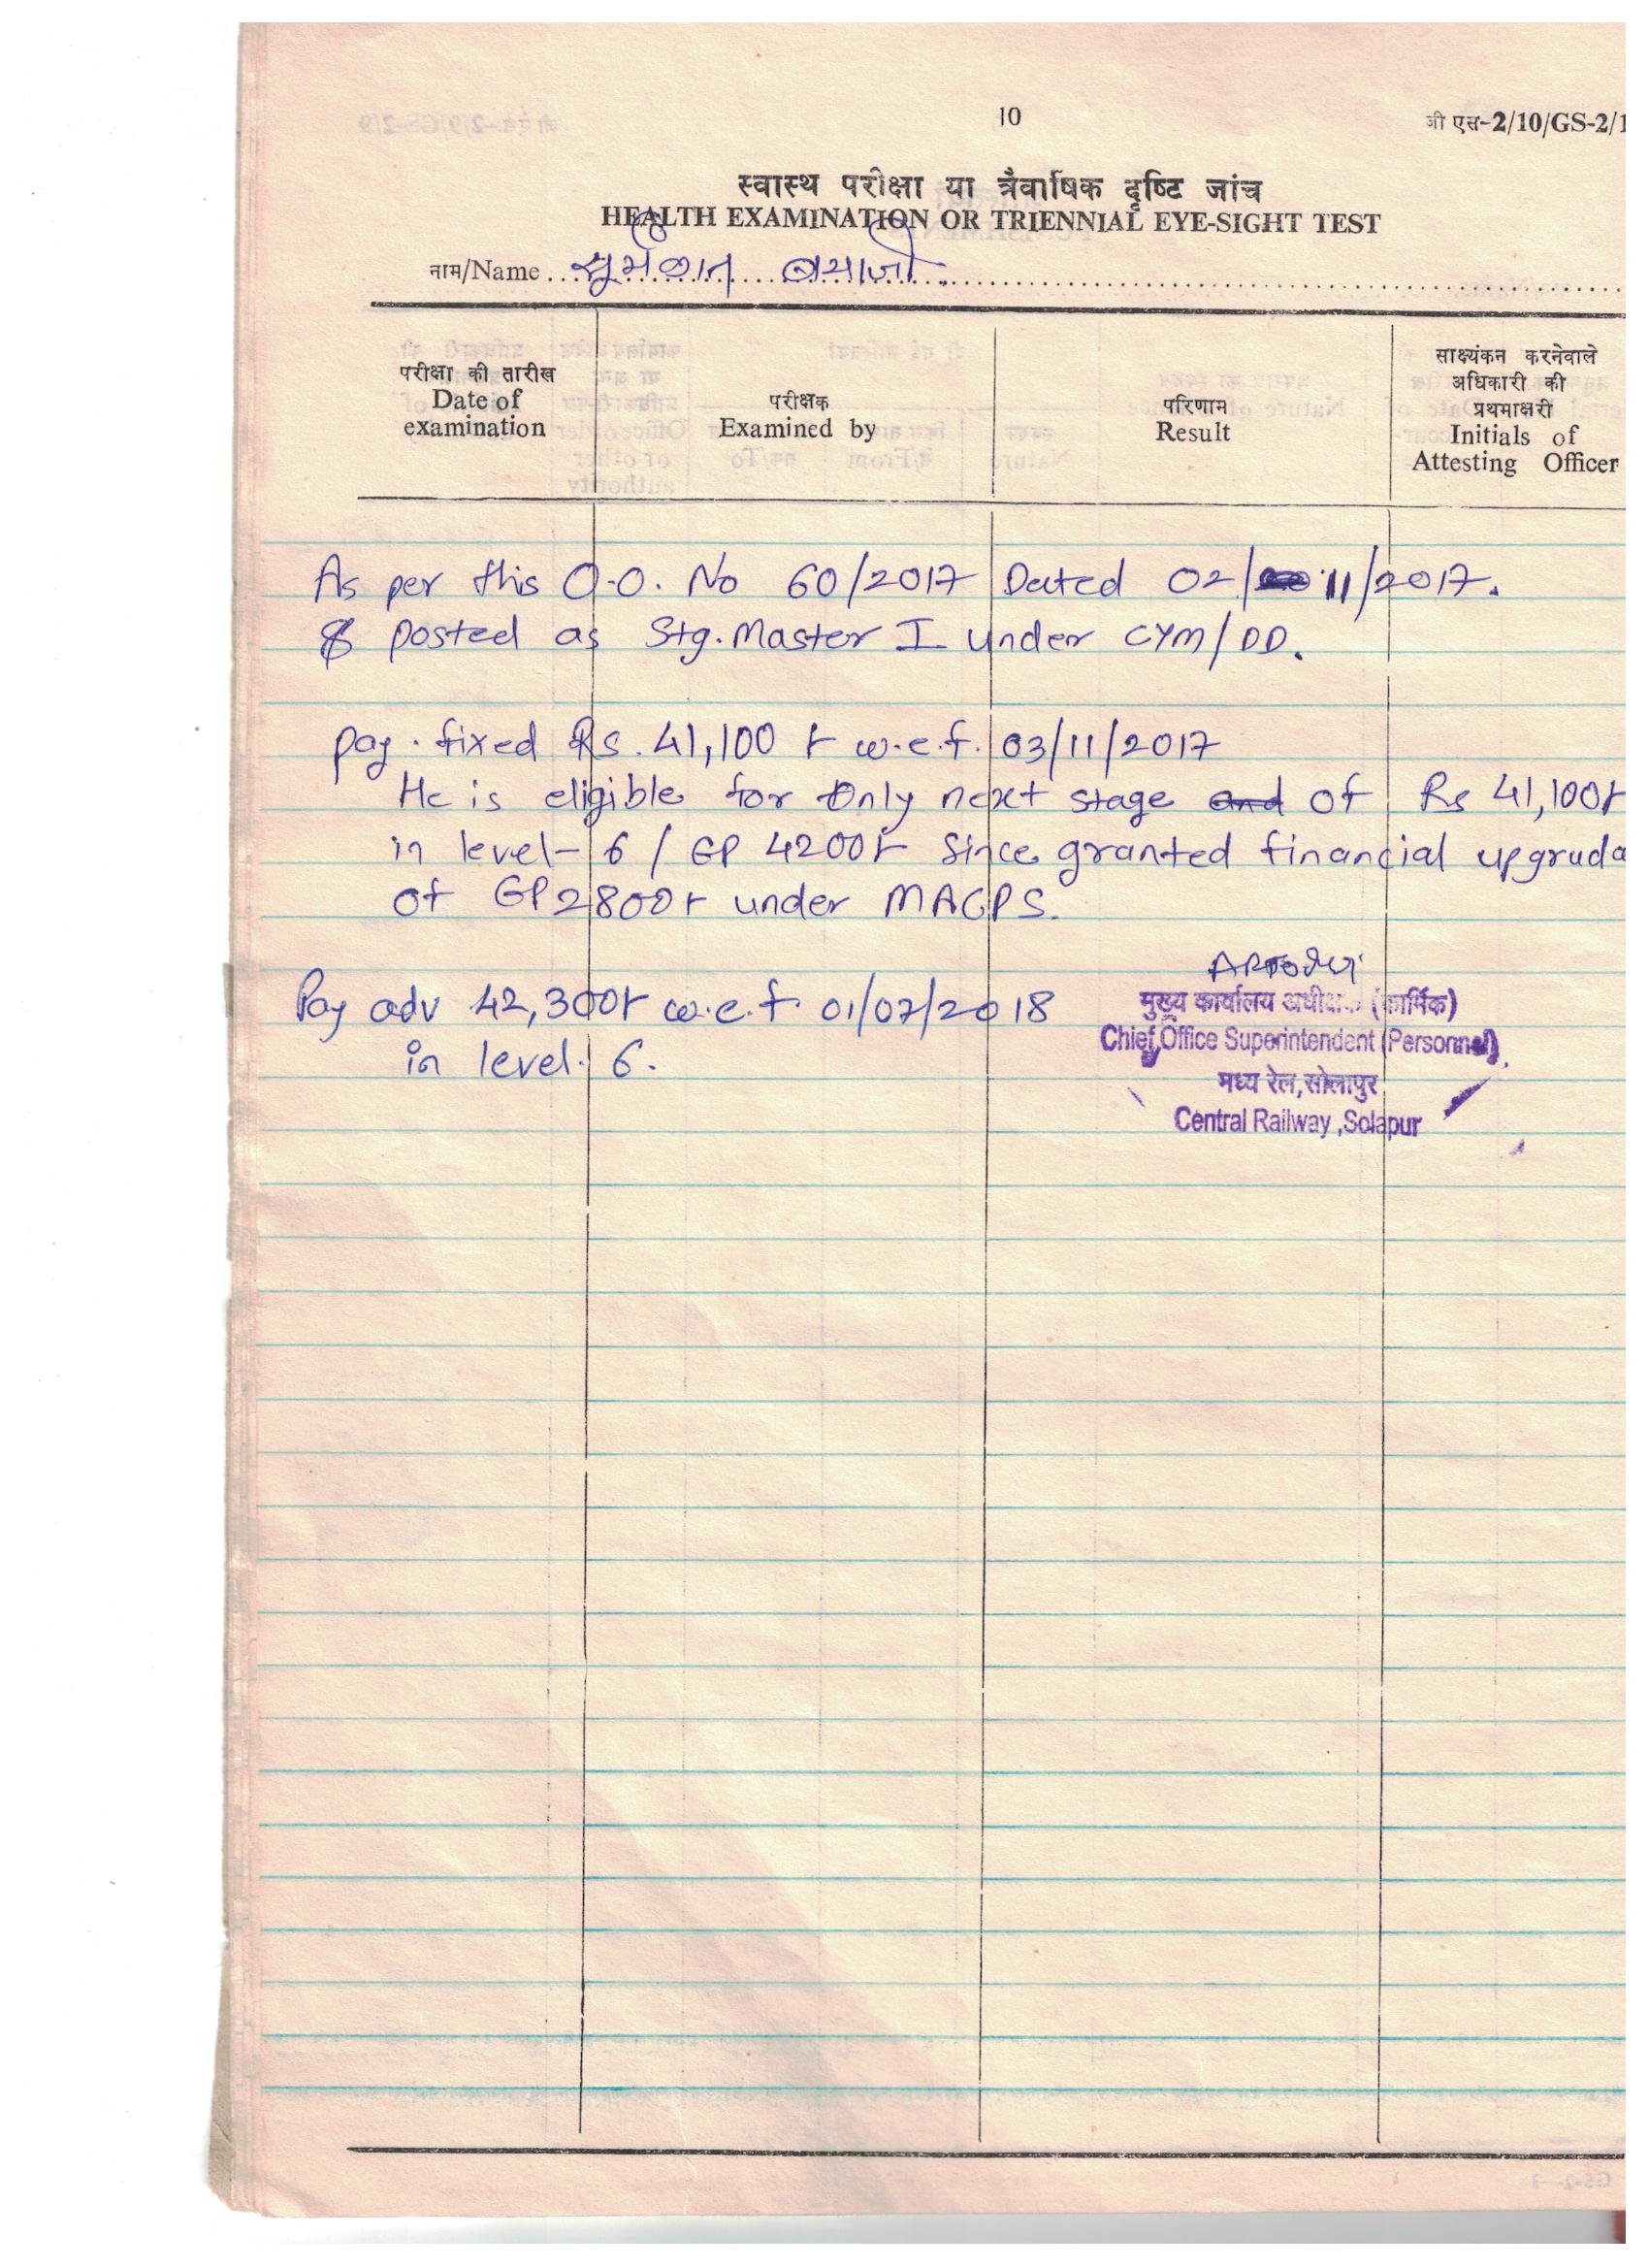 10
जी एस-2/10/GS-2/1
स्वास्थ परीक्षा या त्रैवार्षिक दृष्टि जांच
HEALTH EXAMINATION OR TRIENNIAL EYE-SIGHT TEST
नाम/Name
परीक्षा की तारीख
Date of
examination
परीक्षक
Examined by
परिणाम
Result
साक्ष्यंकन करनेवाले
अधिकारी की
प्रथमाक्षरी
Initials of
Attesting Officer
As per this O.O. No 60/2017 Dated 02/11/2017.
& posted as Stg. Master I under CYM/DD.
pay . fixed Rs. 41,100/- w.e.f. 03/11/2017
He is eligible for Only next stage and of Rs 41,100/-
in level-6 / GP 4200/- Since granted financial upgrada
of GP2800/- under MACPS.
Pay adv 42,300/- w.e.f. 01/07/2018
in level. 6.
मुख्य कार्यालय अधीक्षक (कार्मिक)
Chief Office Superintendent (Personnel)
मध्य रेल,सोलापुर
Central Railway ,Solapur